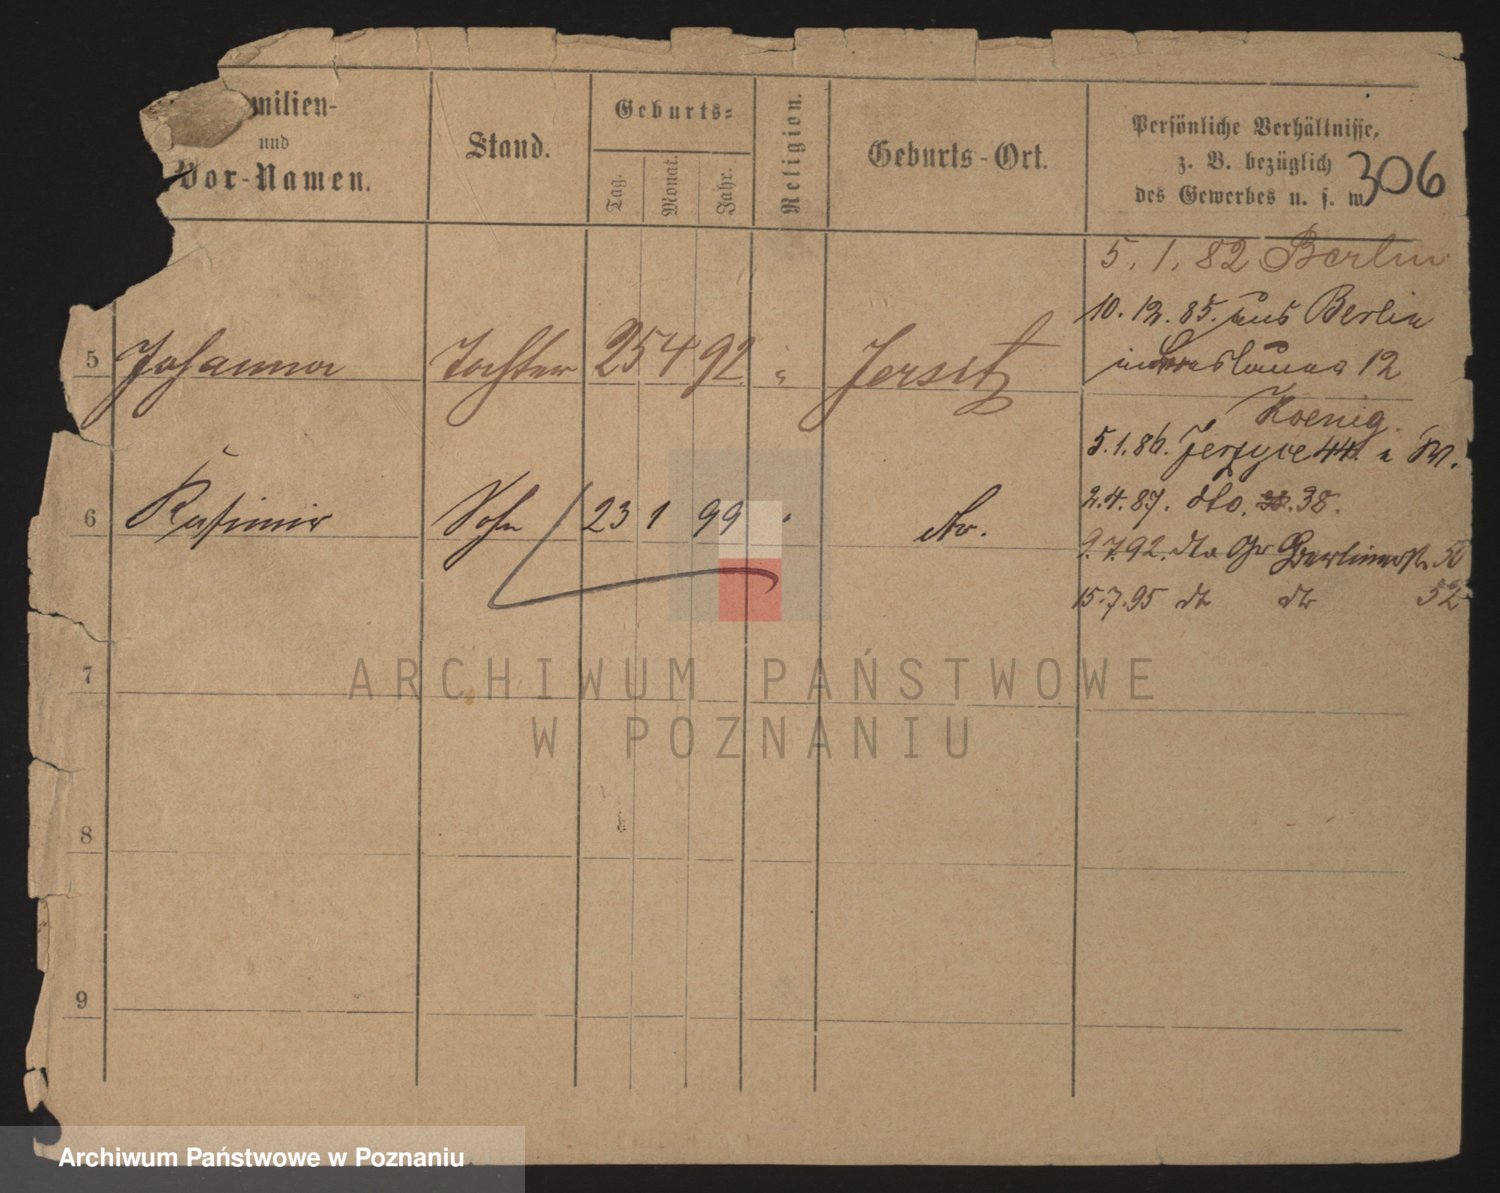 milien-
und
Vor-Namen.
Stand.
Geburts-
Tag.
Monat.
Jahr.
Religion.
Geburts-Ort.
Persönliche Verhältnisse,
z. B. bezüglich
des Gewerbes u. s. w.
306
5. 1. 82 Berlin
10. 12. 85. aus Berlin
12
5 Johanna Tochter 25 4 92. " Jersitz
Koenig.
5.1.86. Jerzyce 44.
6 Kasimir Sohn 23 1 99 " do.
2.4.87. dto. 38.
9.7.92. dto Gr Berlinerstr. 50
15.7.95 dto dto 52
7
8
9
ARCHIWUM PAŃSTWOWE
W POZNANIU
Archiwum Państwowe w Poznaniu